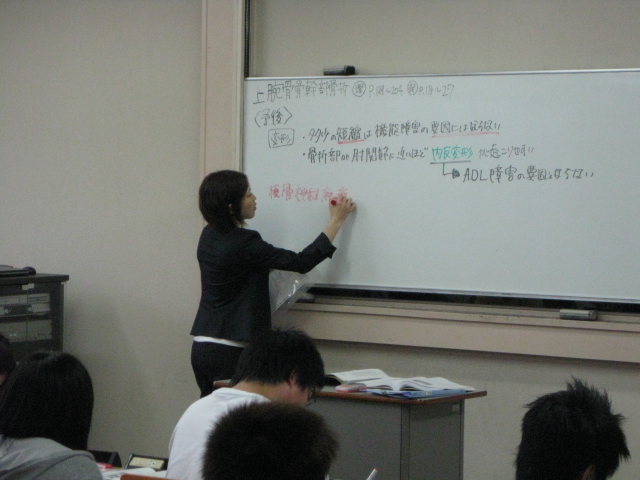 上腕骨骨幹部骨折
〈予後〉
変形 ・多少の短縮は機能障害の要因にはならない
・骨折部が肘関節に近いほど内反変形が起こりやすい
ADL障害の要因とならない
橈骨神経